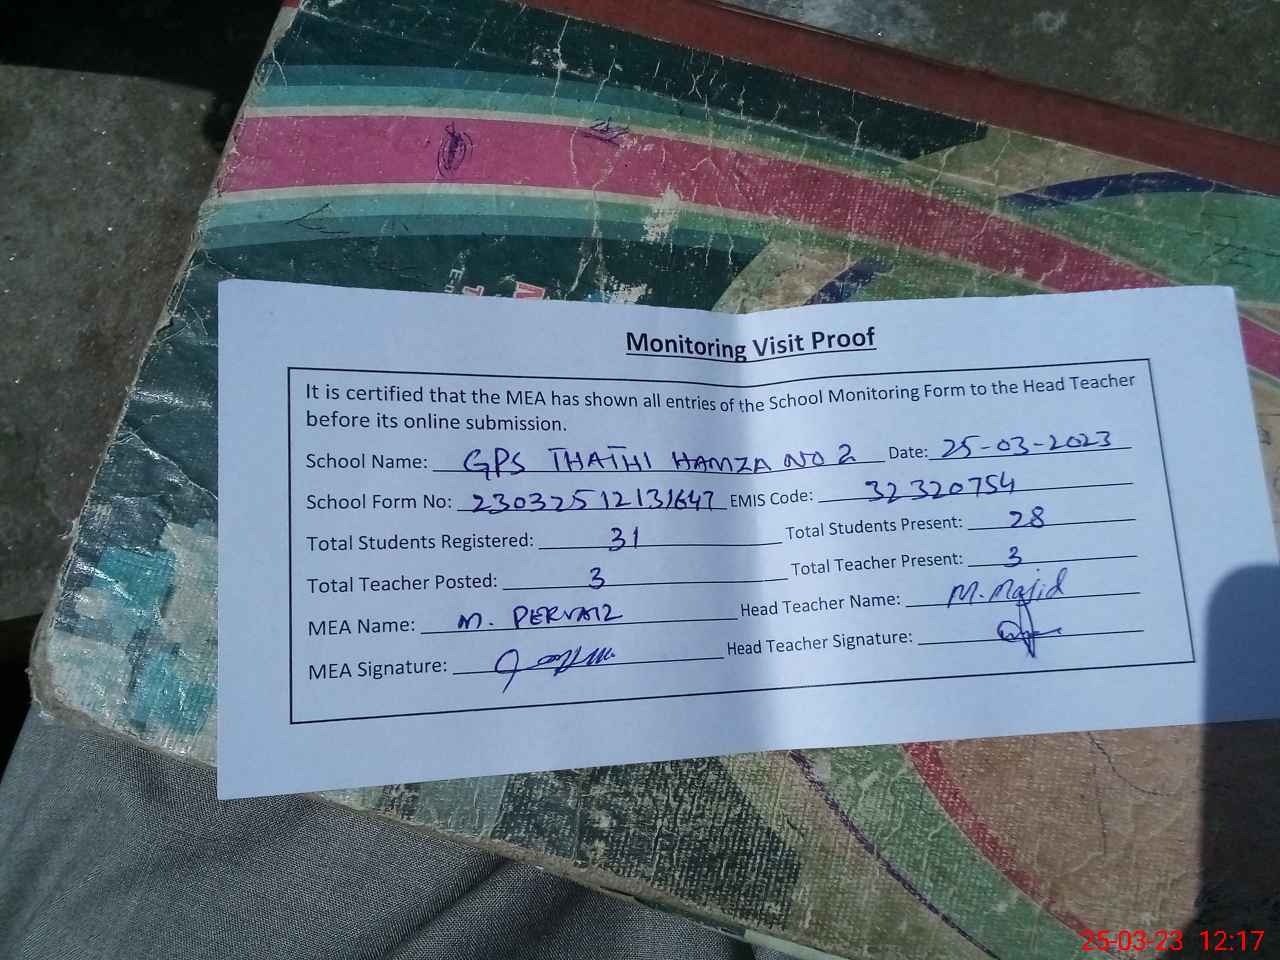 Monitoring Visit Proof
It is certified that the MEA has shown all entries of the School Monitoring Form to the Head Teacher
before its online submission.
School Name: GPS THATHI HAMZA NO 2 Date: 25-03-2023
School Form No: 23032512131647 EMIS Code: 32320754
Total Students Registered: 31 Total Students Present: 28
Total Teacher Posted: 3 Total Teacher Present: 3
MEA Name: M. PERVAIZ Head Teacher Name: M. Majid
MEA Signature: Head Teacher Signature:
25-03-23 12:17